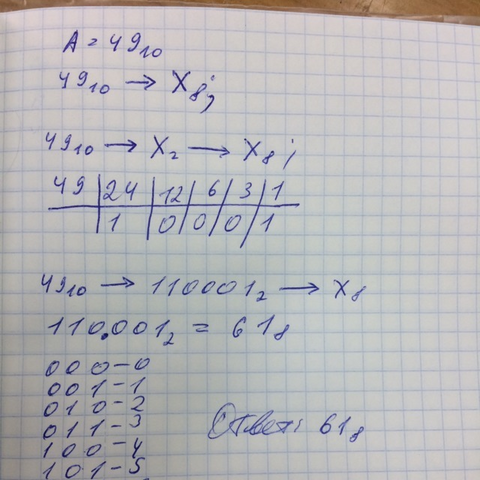 A = 49₁₀
49₁₀ → X₈;
49₁₀ → X₂ → X₈;
49 | 24 | 12 | 6 | 3 | 1
1 | 0 | 0 | 0 | 1
49₁₀ → 110001₂ → X₈
110.001₂ = 61₈
000-0
001-1
010-2
011-3
100-4
101-5
Ответ: 61₈